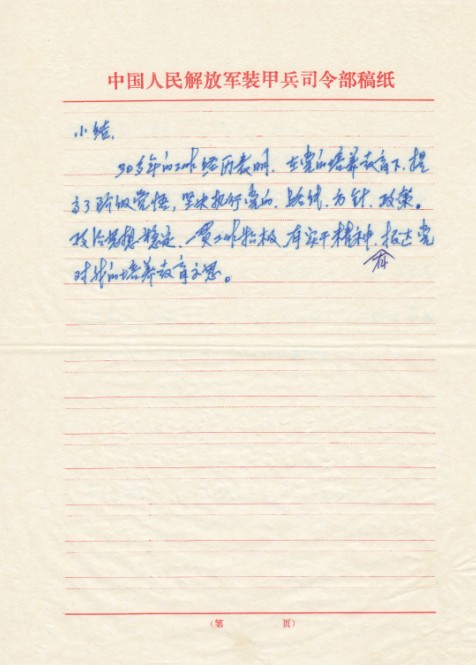 中国人民解放军装甲兵司令部稿纸
小结,
30多年的工作经历表明,在党的培养教育下,提
高了阶级觉悟,坚决执行党的,路线,方针,政策。
政治思想稳定,工作积极,有实干精神,报达党
对我的培养教育之恩。
(第 页)